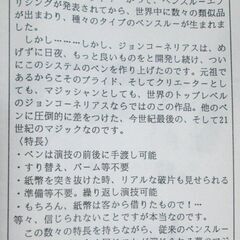 リシングが発表されてから、世界中に数々の類似品
が出まわり、種々のタイプのペンスルーが生まれまし
た。
しかし………しかし、ジョンコーネリアスは、め
げずに日夜、もっと良いものをと開発し続け、つい
にこのシステムのペンを作り上げたのです。元祖で
あるからこそのプライド、そしてクリエーターとし
ても、マジッシャンとしても、世界のトップレベル
のジョンコーネリアスならではのこの作品。他のペン
に圧倒的に差をつけた、今世紀最後の、そして21
世紀のマジックなのです。
(特長)
・ペンは演技の前後に手渡し可能
・すり替え、パーム等不要
・紙幣を突き抜けた時、リアルな破片も見せられる
・準備等不要、繰り返し演技可能
・もちろん、紙幣は客から借りたもので!…
等々、信じられないことですが本当なのです。
この数々の特長を持ちながら、従来のペンスルー